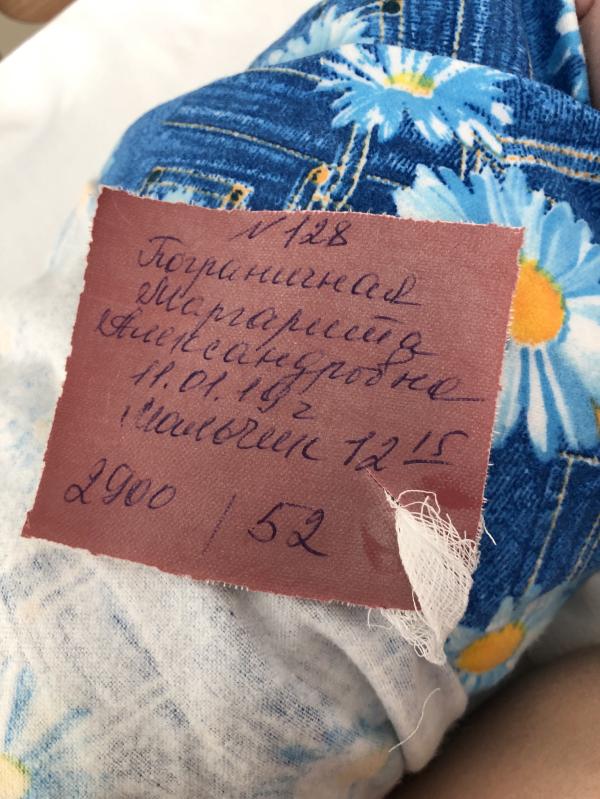 N 128
Пограничная
Маргарита
Александровна
11.01.19г
мальчик 12 15
2900 / 52